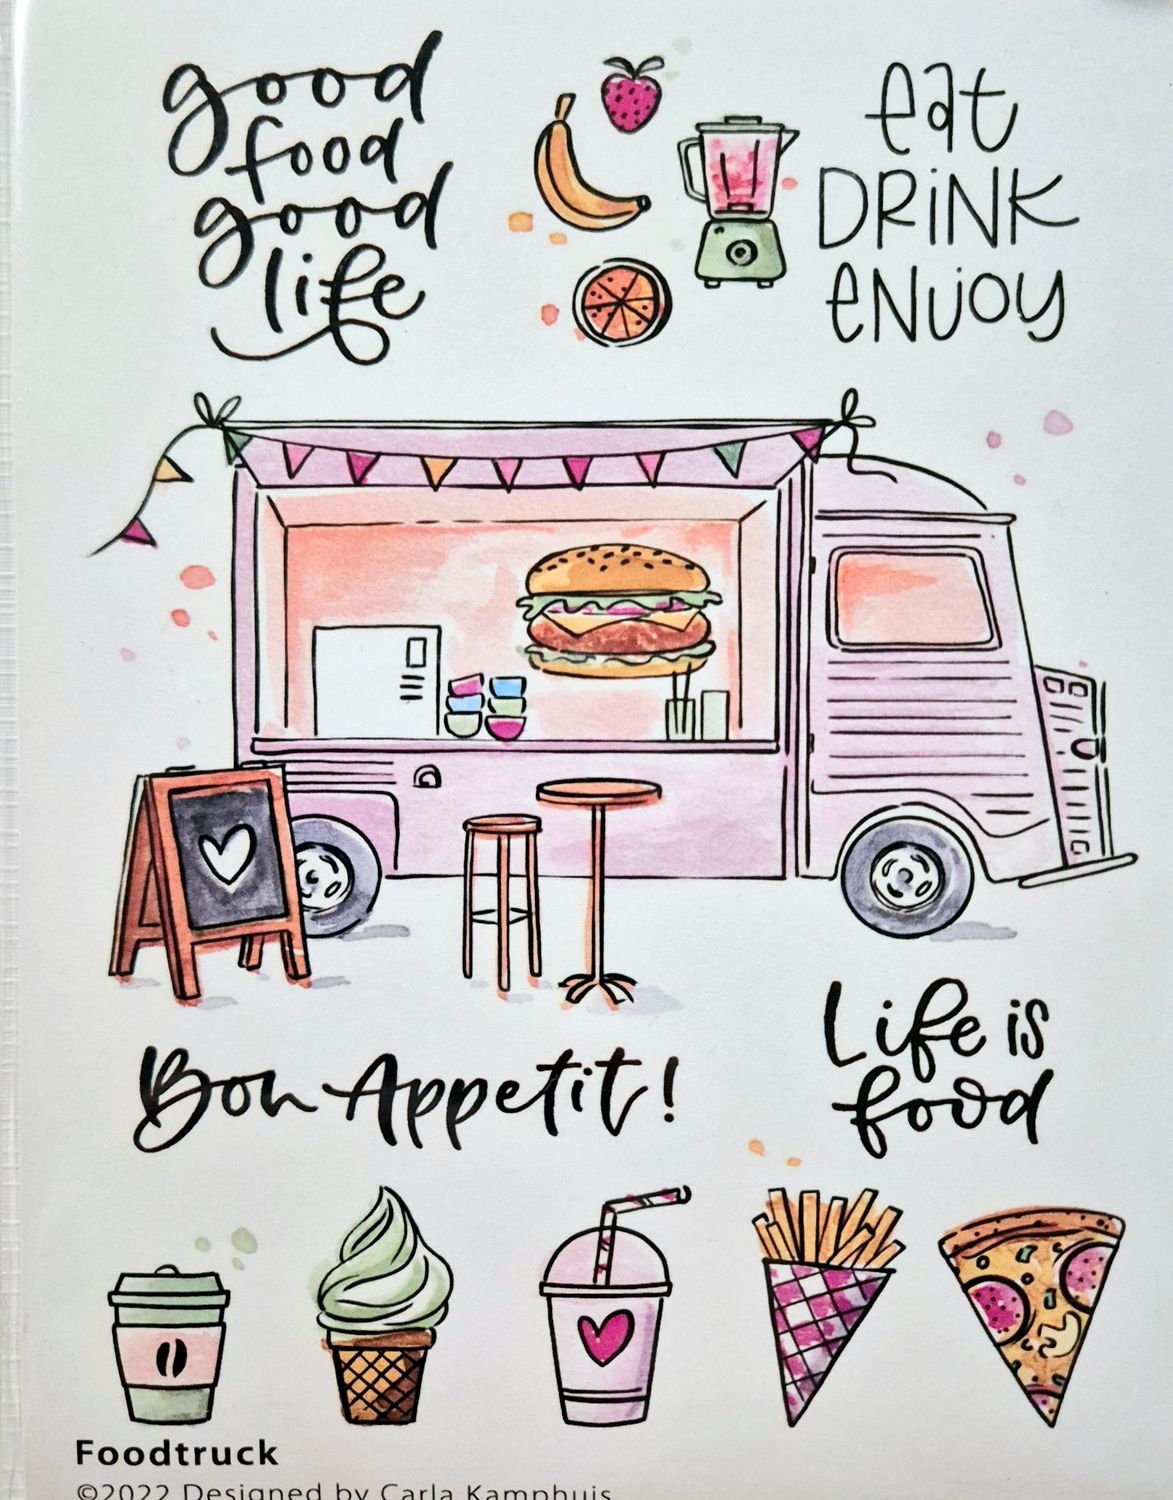 good
food
good
life
eat
DRiNK
eNjoy
Life is
food
Bon Appetit!
Foodtruck
©2022 Designed by Carla Kamphuis